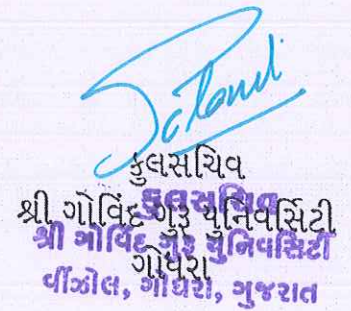 કુલસચિવ
શ્રી ગોવિંદ ગુરૂ યુનિવર્સિટી
ગોધરા
કુલસચિવ
શ્રી ગોવિંદ ગુરૂ યુનિવર્સિટી
વીંઝોલ, ગોધરા, ગુજરાત